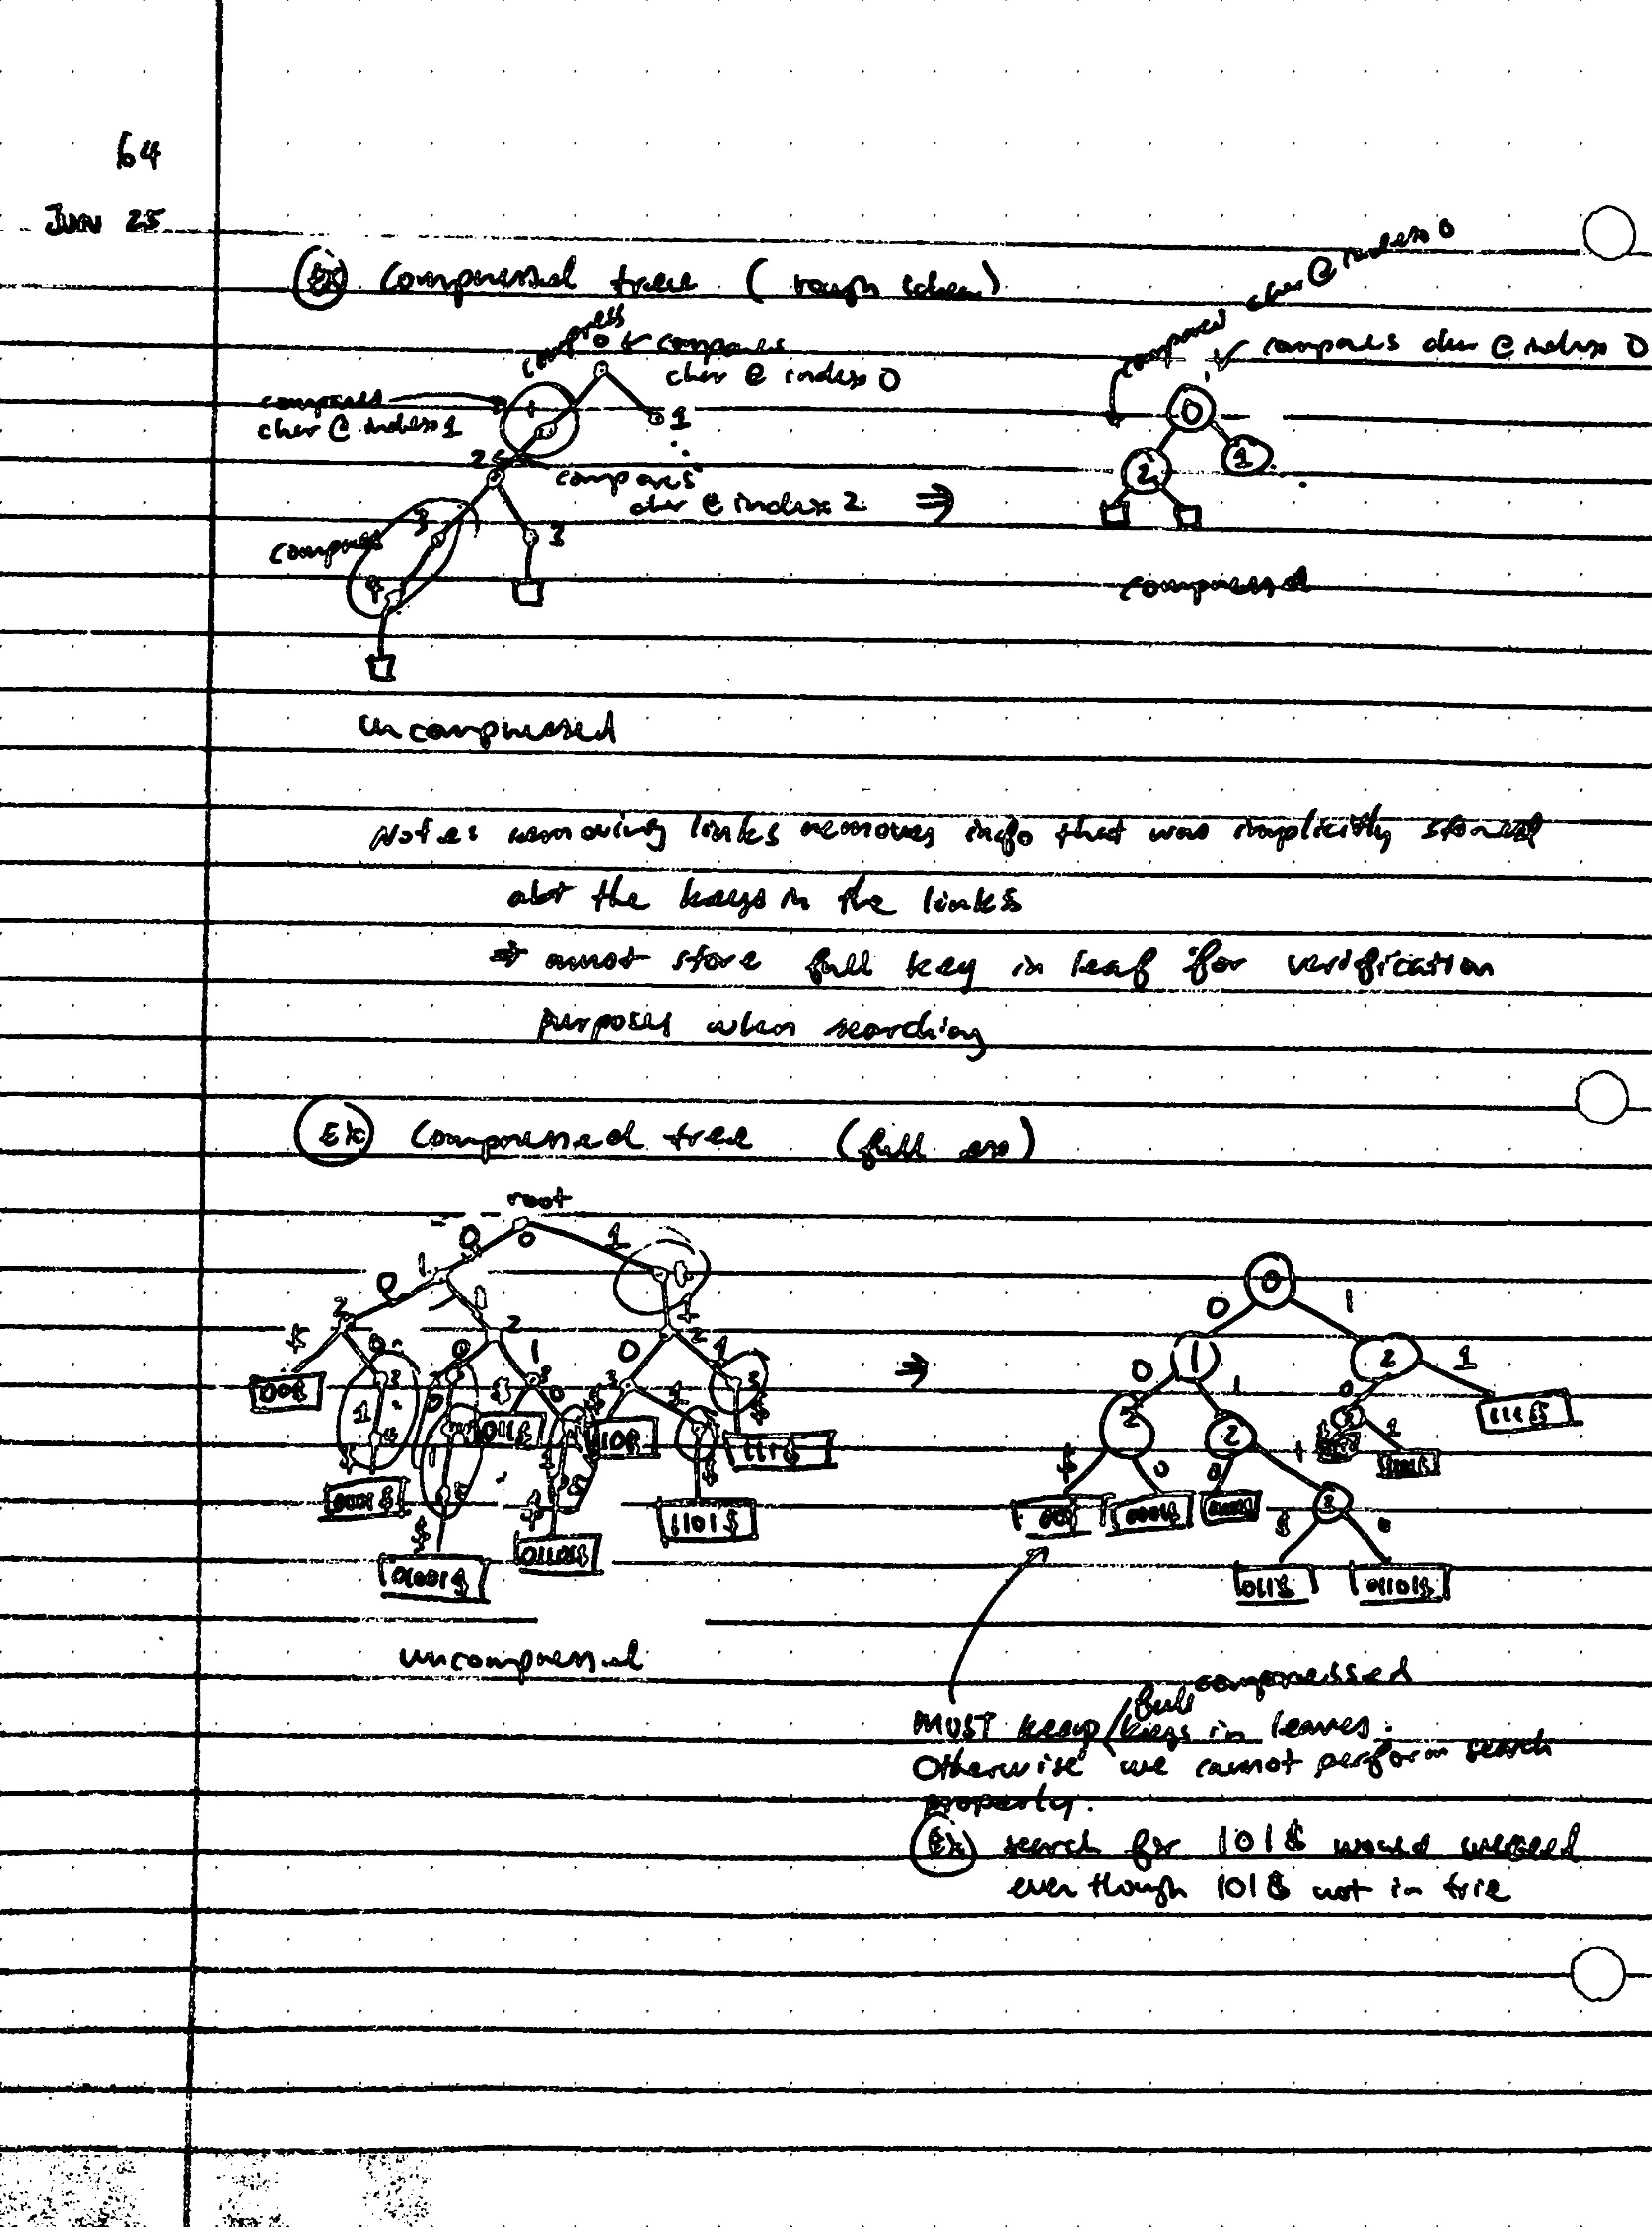 64
Jun 25
Ex compressed tree (rough idea)
compress
0 compares
char @ index 0
compares
char @ index 1
1
1
2
compares
char @ index 2
3
3
compress
4
uncompressed
⇒
compares char @ index 0
compares char @ index 0
0
2
1
compressed
Notes removing links removes info that was implicitly stored
abt the keys in the links
⇒ must store full key in leaf for verification
purposes when searching
Ex compressed tree (full ex)
root
0 0 1
1
0 1 1
2 2 2
$ 0 0 1 0 1
00$ 3 3 3 3
1 0 $ 0 $ 1 $
011$ 110$ 111$
$
0001$ $ $ 1101$
01101$
01001$
uncompressed
⇒
0
0 1
1 2
0 1 0 1
2 2 3 111$
$ 0 0 1 1
00$ 0001$ 3
$ 0
011$ 01101$
compressed
MUST keep full keys in leaves.
Otherwise we cannot perform search
properly.
Ex search for 101$ would succeed
even though 101$ not in trie